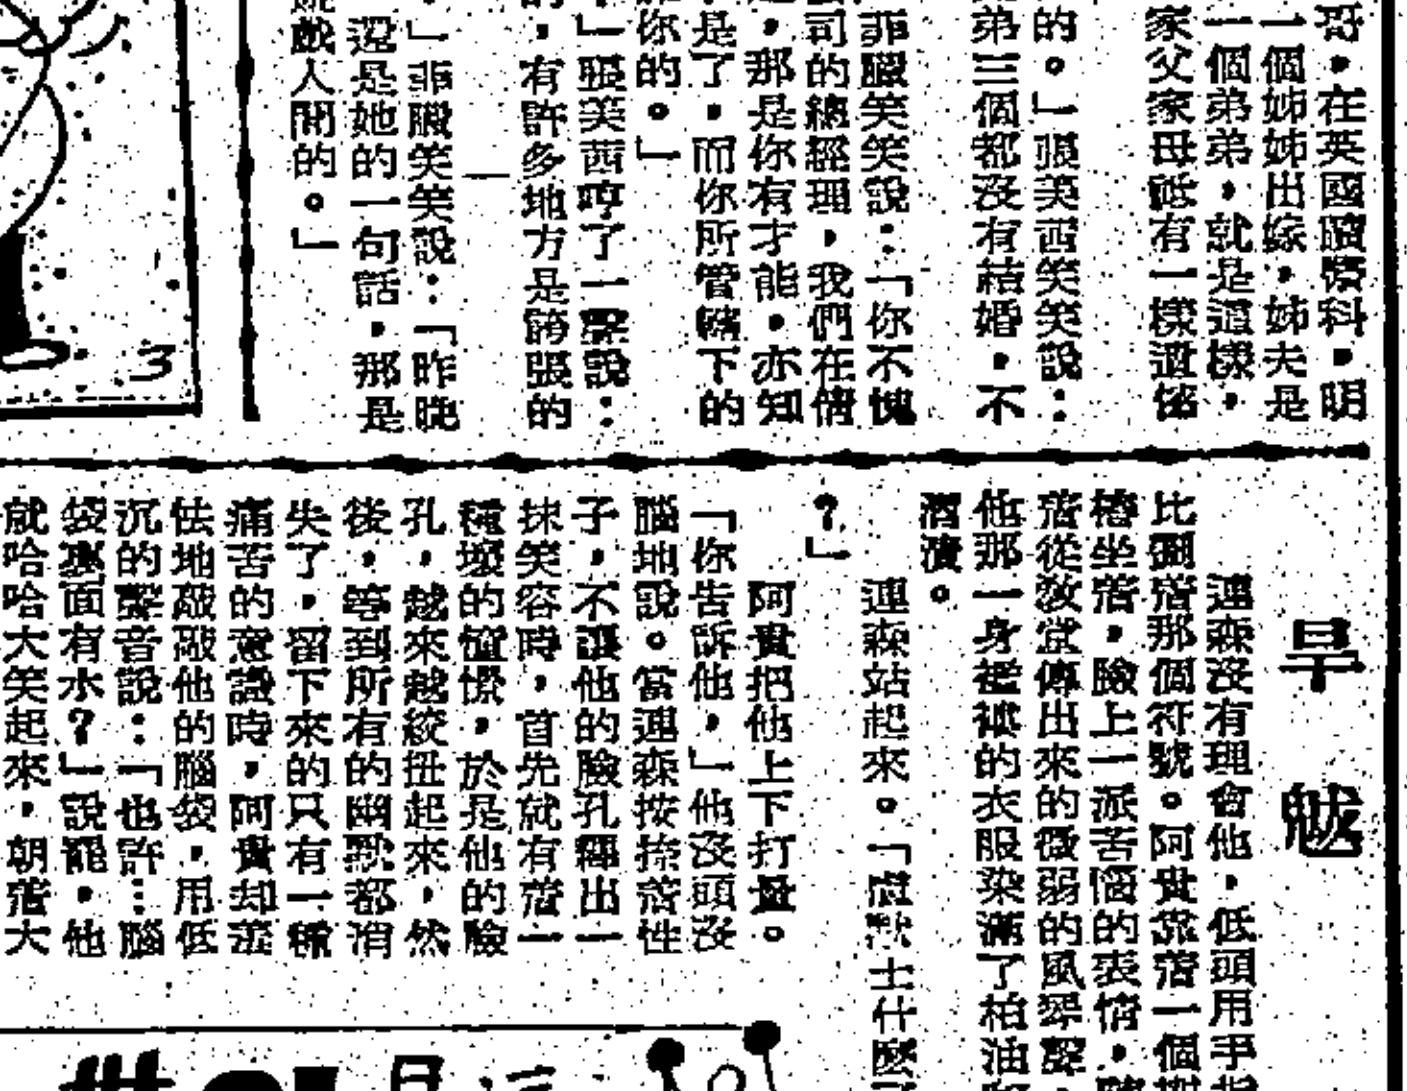 哥,在英國讀醫科,明
一個姊姊出嫁,姊夫是
一個弟弟,就是這樣,
家父家母祗有一樣遺
的。」張美西笑笑說:
弟三個都沒有結婚,不
菲臘笑笑說:「你不愧
司的總經理,我們在情
,那是你有才能,亦知
是了,而你所管轄下的
你的。」
」張美茜哼了一聲說:
,有許多地方是誇張的
」菲臘笑笑說:「昨晚
還是她的一句話,那是
戲人間的。」
3
旱魃
連森沒有理會他,低頭用手
比劃着那個符號。阿貴靠着一個
樁坐着,臉上一派苦惱的表情,
着從教堂傳出來的微弱的風琴聲,
他那一身襤褸的衣服染滿了柏油
漬。
連森站起來。「士什麼
?」
阿貴把他上下打量。
「你告訴他,」他沒頭沒
腦地說。當連森按捺着性
子,不讓他的臉孔露出一
抹笑容時,首先就有着一
種壞的憧憬,於是他的臉
孔,越來越絞扭起來,然
後,等到所有的幽默都消
失了,留下來的只有一種
痛苦的意識時,阿貴却羞
怯地敲敲他的腦袋,用低
沉的聲音說:「也許…腦
袋裏面有水?」說罷,他
就哈哈大笑起來,朝着大